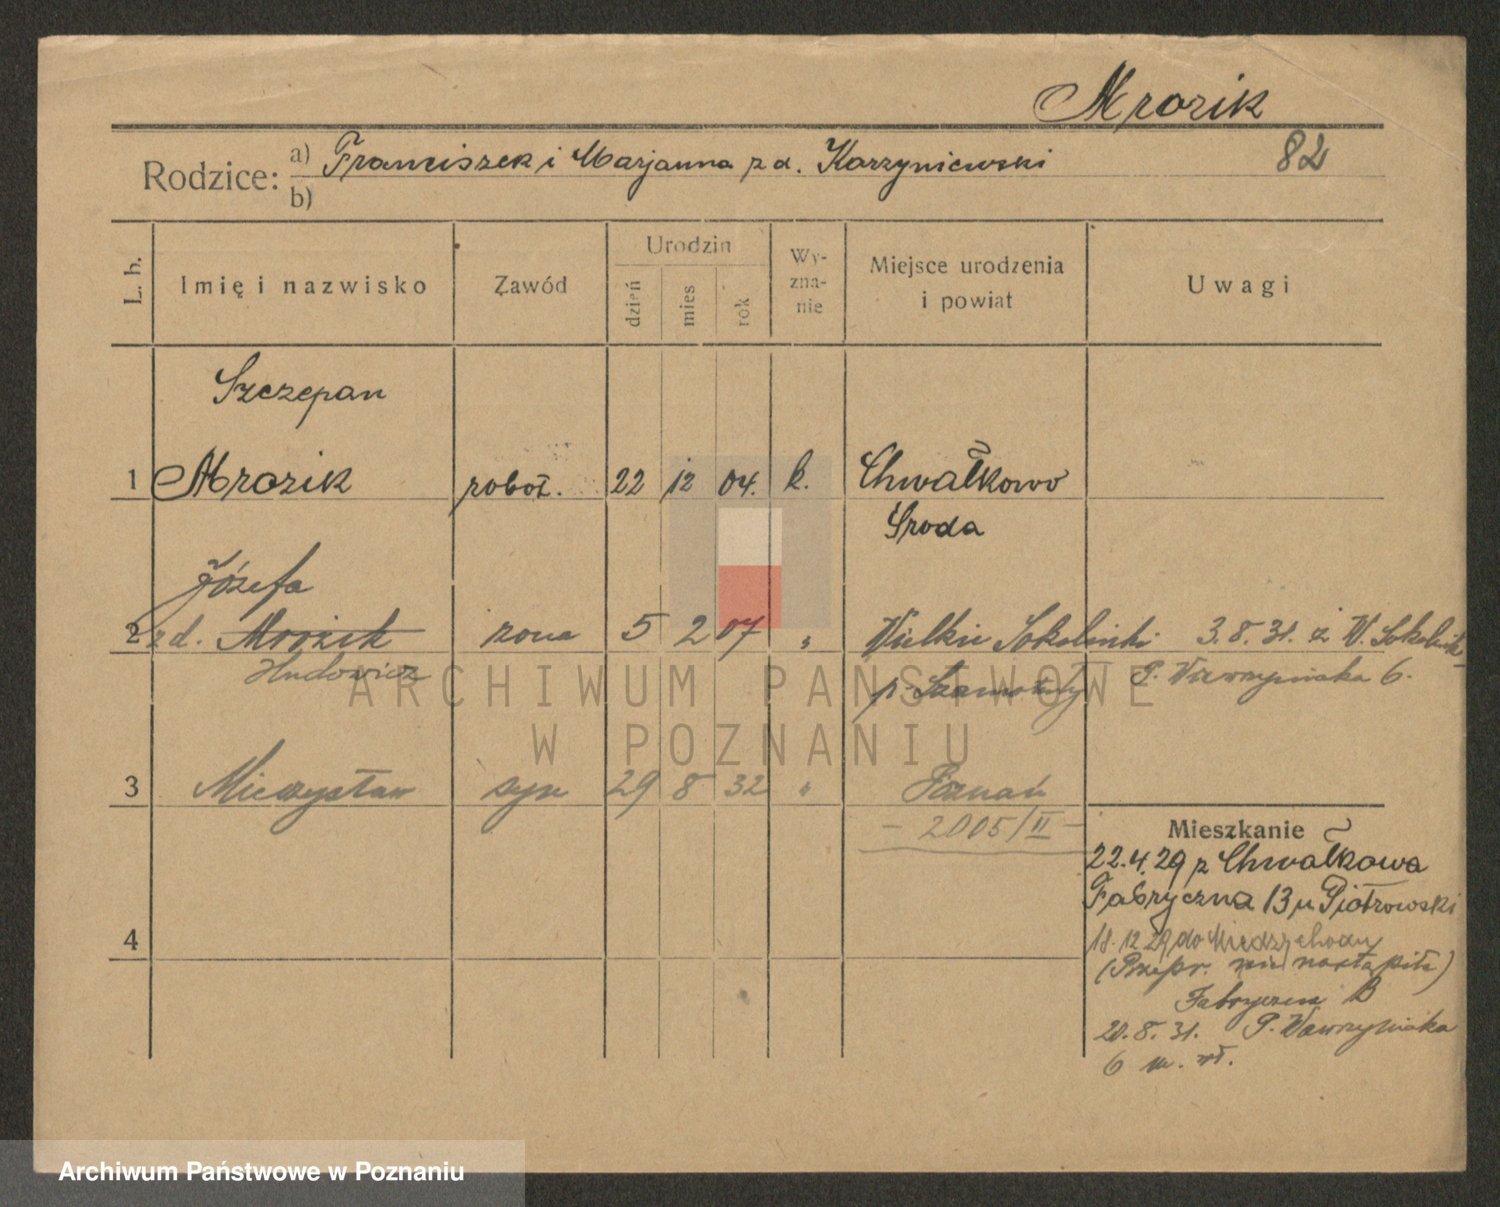 Mrozik
82
Rodzice: a) Franciszek i Marjanna z d. Karzyniewski
b)
L. b.
Imię i nazwisko
Zawód
Urodzin
dzień
mies
rok
Wy-
zna-
nie
Miejsce urodzenia
i powiat
Uwagi
Szczepan
1 Mrozik robot. 22 12 04. k. Chwałkowo
Środa
Józefa
2 z d. Mrozik żona 5 2 07 " Wielkie Sokolniki 3.8.31. z W. Sokolnik
Hudowicz p. Szamotuły P. Wawrzyniaka 6.
3 Mieczysław syn 29 8 32 " Poznań
- 2005/II -
Mieszkanie
22.4.29 z Chwałkowa
Fabryczna 13 u Piotrowski
18.12.29 do Międzychodu
(Przepr. nie nastąpiła)
Fabryczna 13
20.8.31. P. Wawrzyniaka
6 m. wł.
4
ARCHIWUM PAŃSTWOWE
W POZNANIU
Archiwum Państwowe w Poznaniu